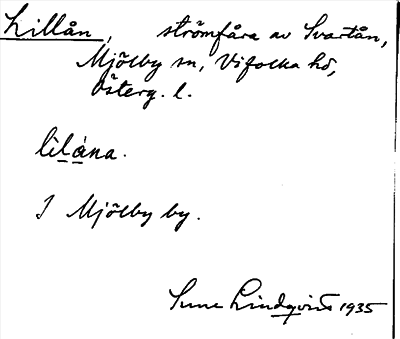 Lillån, strömfåra av Svartån,
Mjölby sn, Vifolka hd,
Österg. l.
lilåna.
I Mjölby by.
Sune Lindqvist 1935